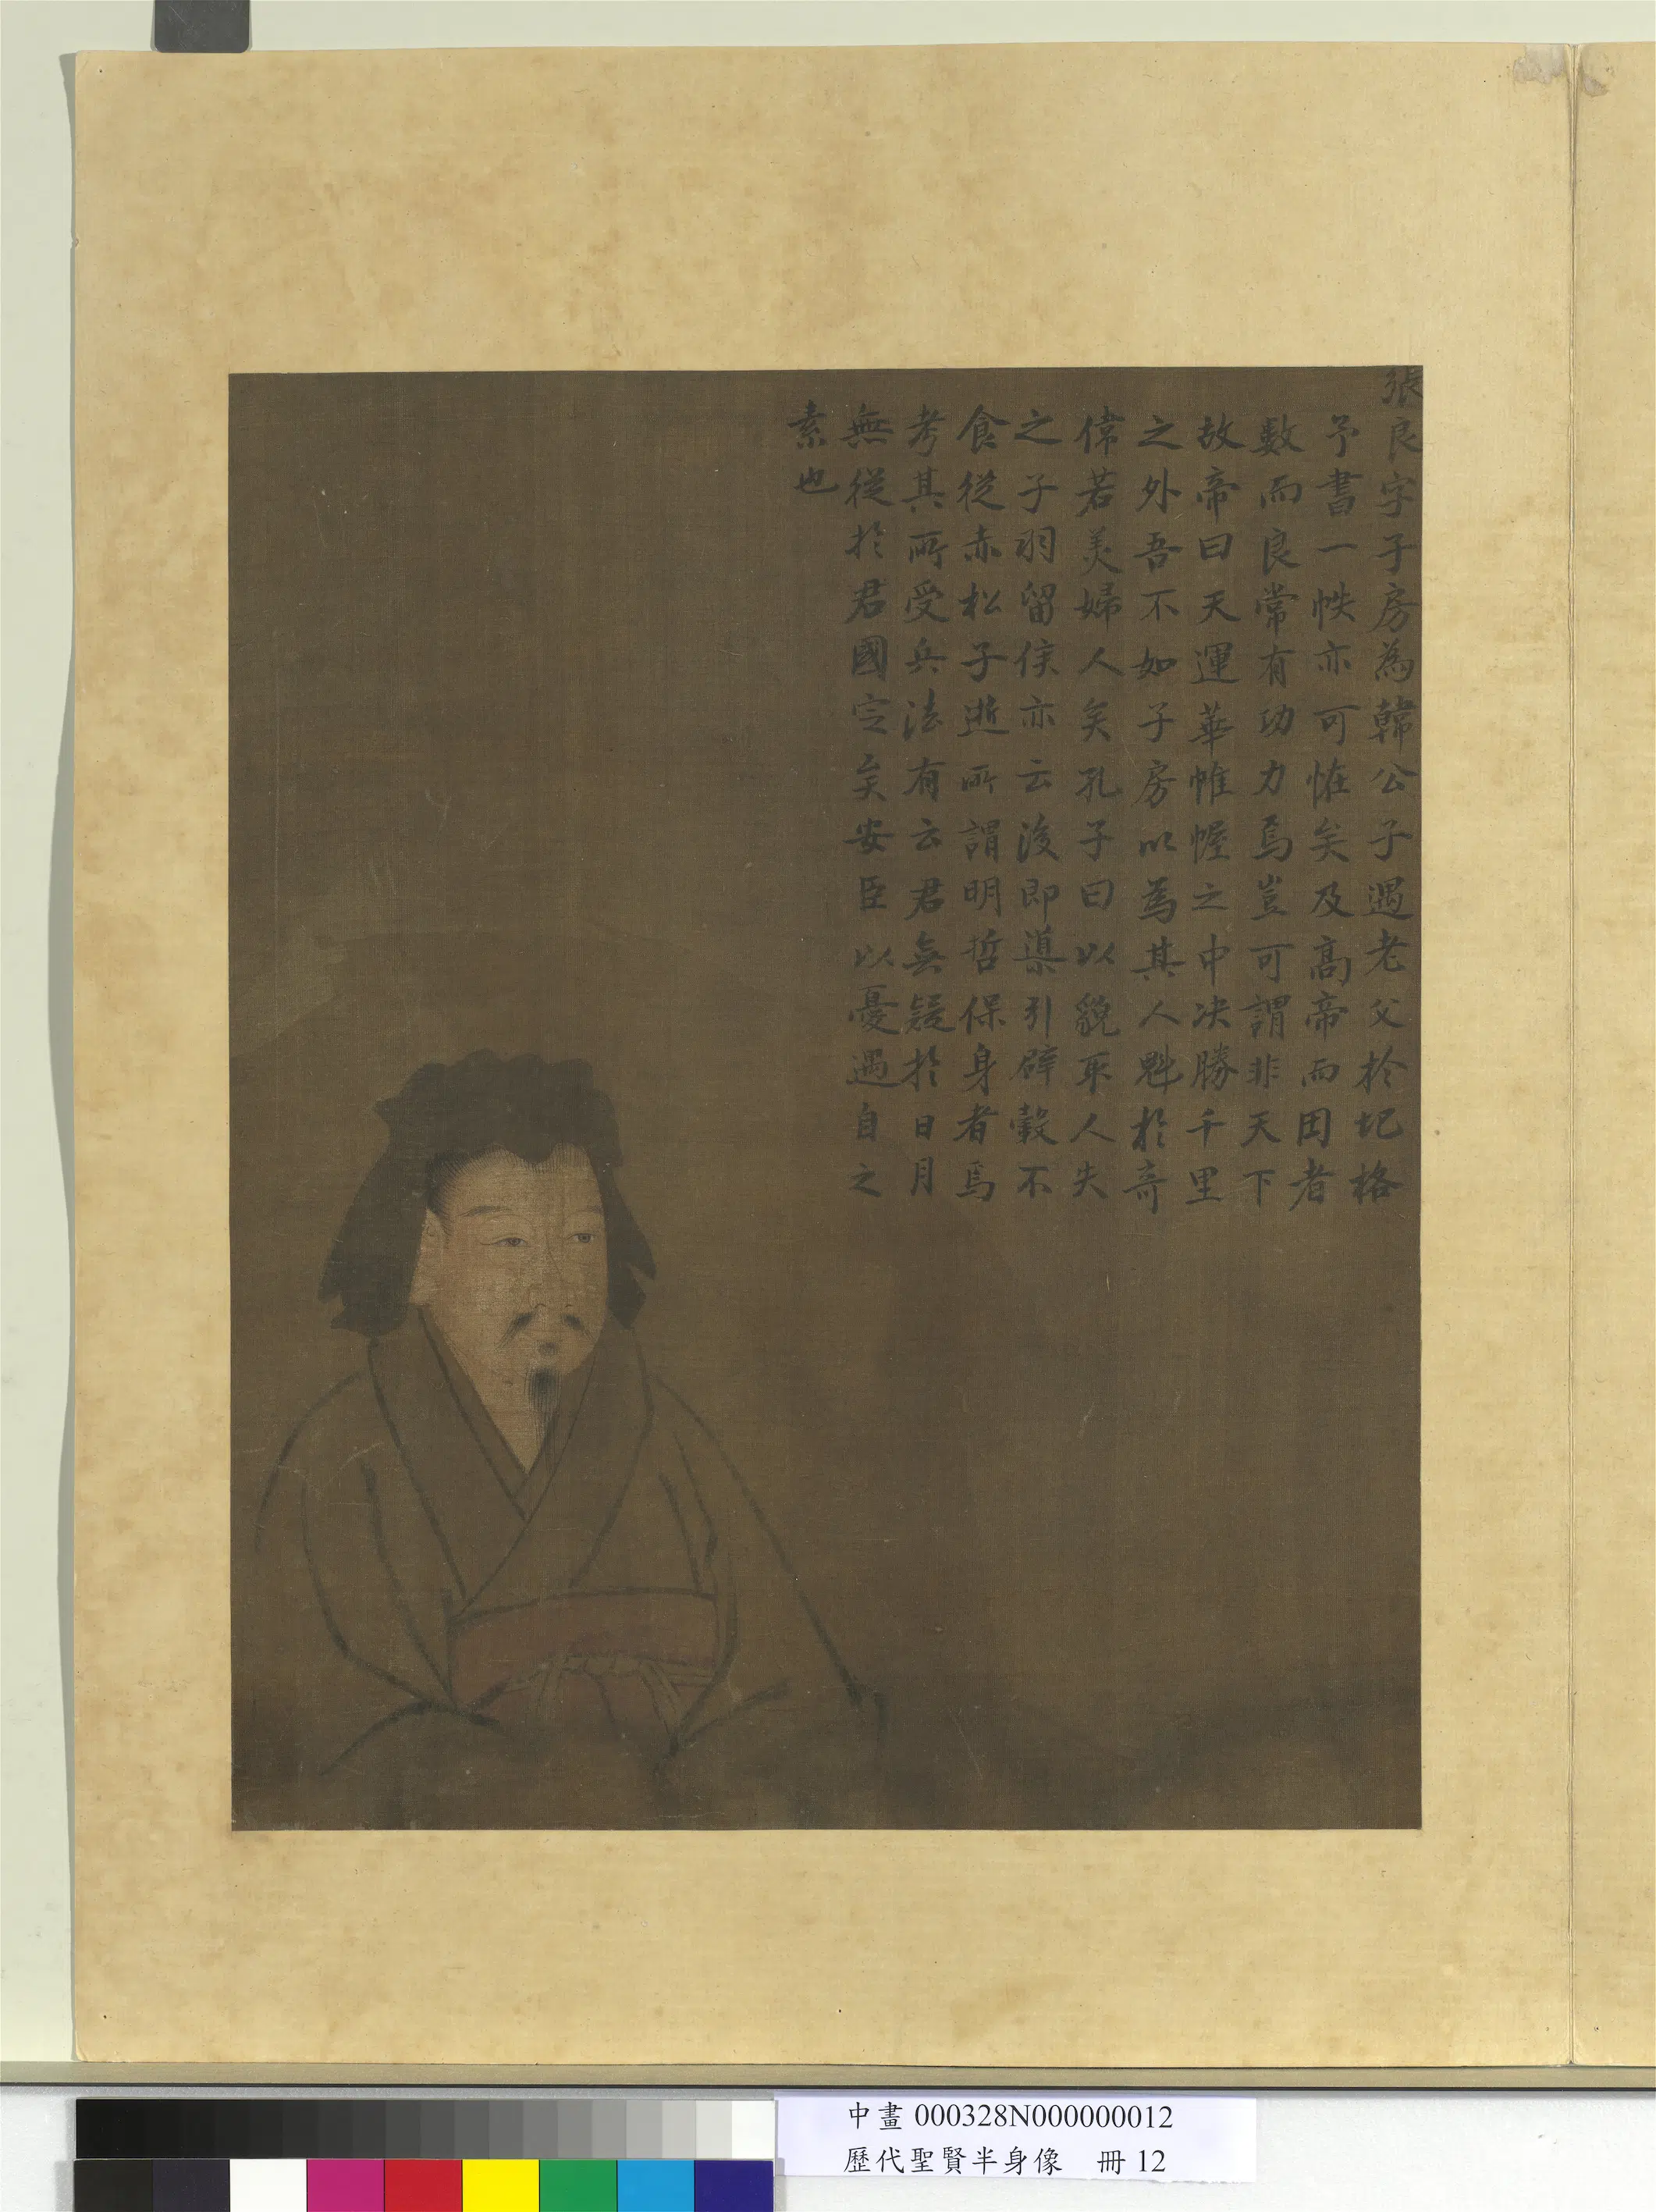 張良字子房為韓公子遇老父於圯格
予書一帙亦可恠矣及高帝而困者
數而良常有功力焉豈可謂非天下
故帝曰天運華帷幄之中决勝千里
之外吾不如子房以為其人魁於奇
偉若美婦人矣孔子曰以貌取人失
之子羽留侯亦云後即導引辟穀不
食從赤松子逝所謂明哲保身者焉
考其所受兵法有云君無疑於日月
無從於君國定矣安臣以憂遇自之
素也
中畫 000328N000000012
歷代聖賢半身像 冊 12